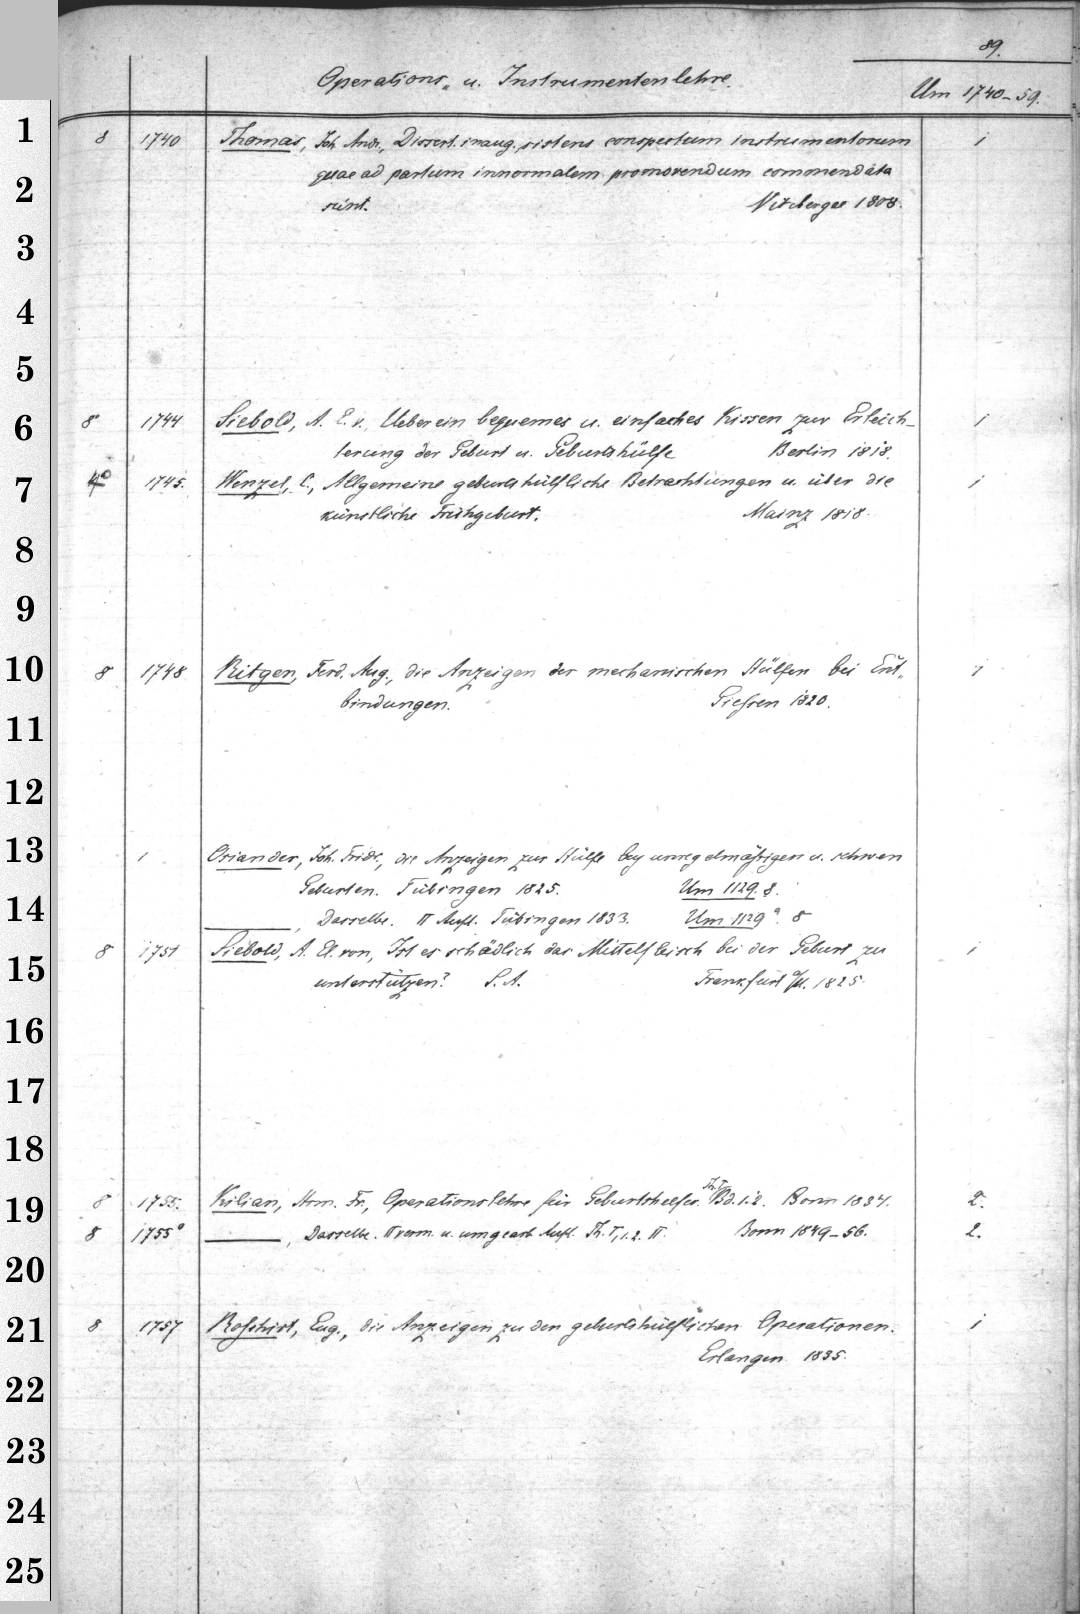 89.
Operations- u. Instrumentenlehre.
Um 1740-59.
1
8 1740 Thomas, Joh. Andr., Dissert. inaug. sistens conspectum instrumentorum 1
2
quae ad partum innormalem promovendum commendata
sint. Vitebergae 1808.
3
4
5
6
8° 1744 Siebold, A. E. v., Ueber ein bequemes u. einfaches Kissen zur Erleich-
terung der Geburt u. Geburtshülfe Berlin 1818. 1
7
4° 1745. Wenzel, C., Allgemeine geburtshülfliche Betrachtungen u. über die 1
künstliche Frühgeburt. Mainz 1818.
8
9
10
8 1748 Ritgen, Ferd. Aug., die Anzeigen der mechanischen Hülfen bei Ent- 1
bindungen. Giessen 1820.
11
12
13
Osiander, Joh. Fridr., die Anzeigen zur Hülfe bey unregelmäßigen u. schwen
Geburten. Tübingen 1825. Um 1129. 8.
14
———, Dasselbe. II Aufl. Tübingen 1833. Um 1129ª. 8
15
8 1751 Siebold, A. El. von, Ist es schädlich das Mittelfleisch bei der Geburt zu 1
unterstützen? S. A. Frankfurt a/M. 1825.
16
17
18
19
8 1755. Kilian, Herm. Fr., Operationslehre für Geburtshelfer. Th. I. Bd. 1.2. Bonn 1834. 2.
8 1755ª ———, Dasselbe. II verm. u. umgearb. Aufl. Th. I, 1.2. II. Bonn 1849-56. 2.
20
21
8 1757 Roshirt, Eug., die Anzeigen zu den geburtshülflichen Operationen. 1
Erlangen 1835.
22
23
24
25